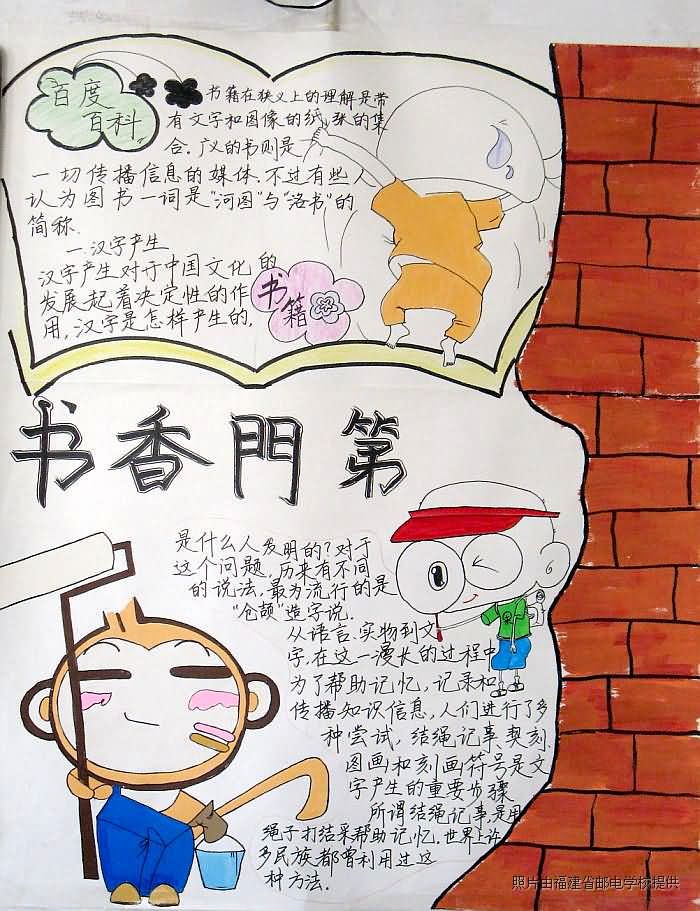 百度
百科
书籍在狭义上的理解是带
有文字和图像的纸张的集
合.广义的书则是
一切传播信息的媒体.不过有些人
认为图书一词是"河图"与"洛书"的
简称.
一.汉字产生
汉字产生对于中国文化的
发展起着决定性的作
用,汉字是怎样产生的,
书籍
书香門第
是什么人发明的?对于
这个问题,历来有不同
的说法,最为流行的是
"仓颉"造字说.
从语言.实物到文
字,在这一漫长的过程中
为了帮助记忆,记录和
传播知识信息,人们进行了多
种尝试,结绳记事、契刻.
图画和刻画符号是文
字产生的重要步骤
所谓结绳记事,是用
绳子打结来帮助记忆.世界上许
多民族都曾利用过这
种方法.
照片由福建省邮电学校提供